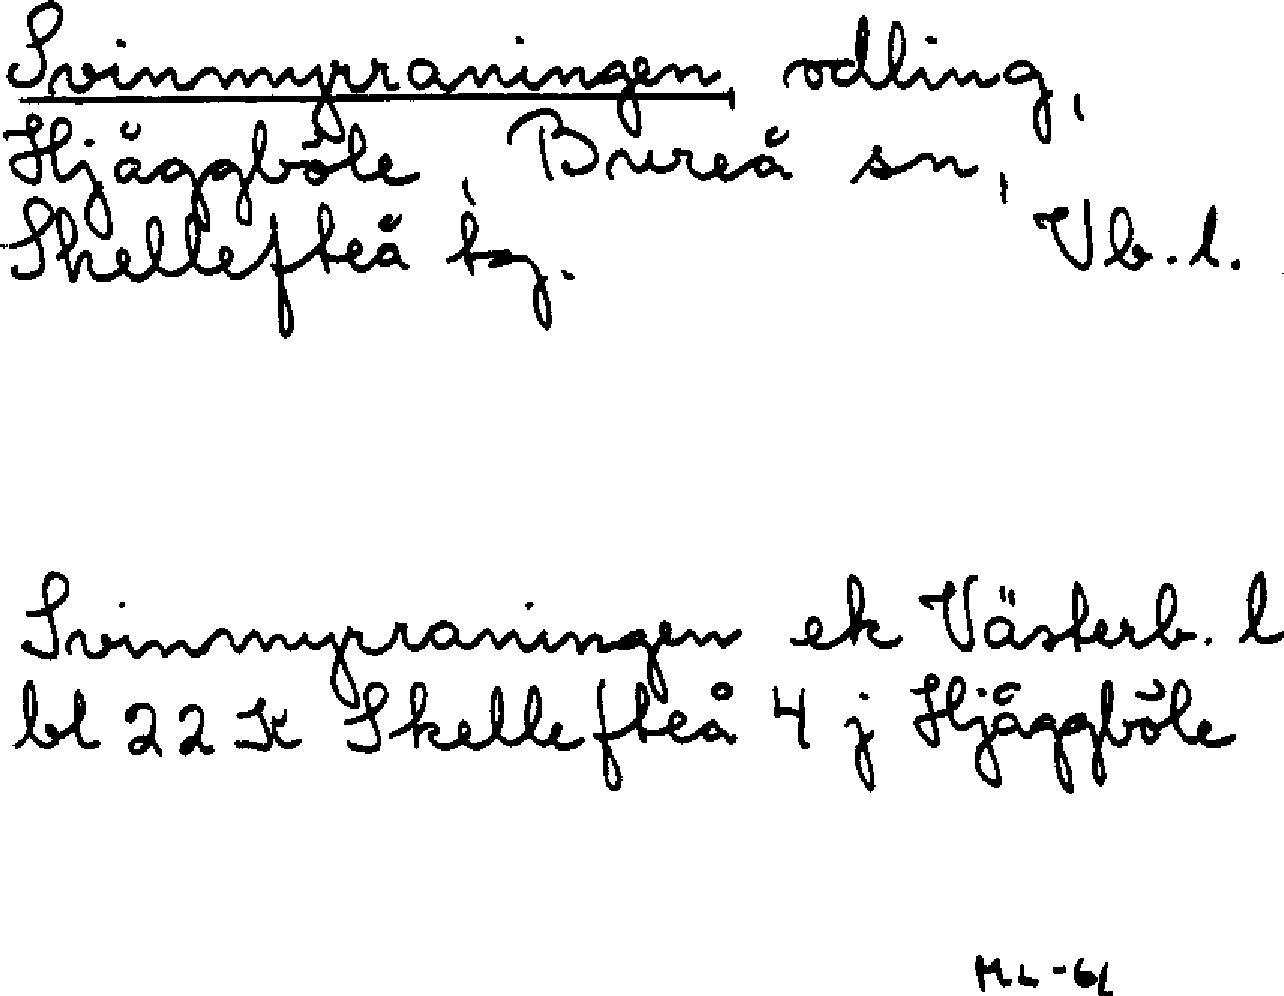 Svinmyrraningen, odling,
Hjäggböle, Bureå sn,
Skellefteå tg. Vb. l.
Svinmyrraningen ek Västerb. l
bl 22 K Skellefteå 4 j Hjäggböle
ML-61